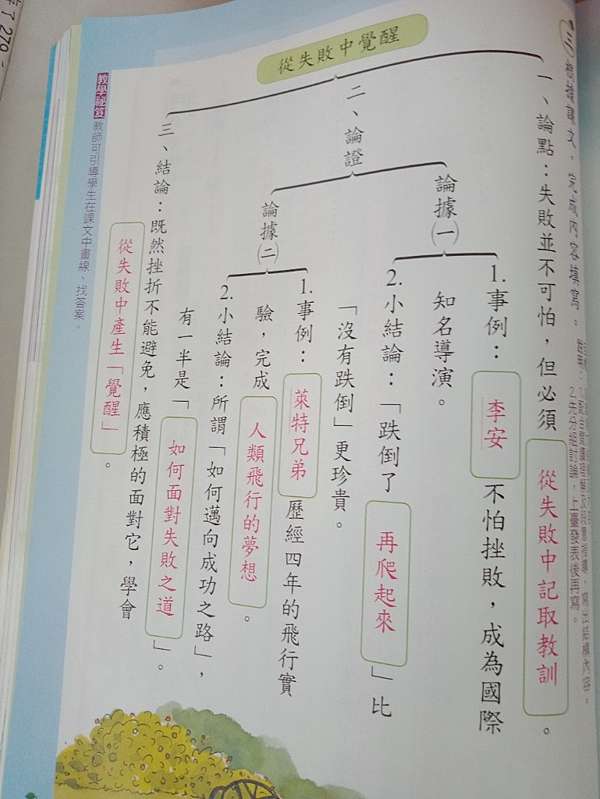 (三)根據課文，完成內容填寫。
2.先分組討論，上臺發表後再寫。
從失敗中覺醒
一、論點：失敗並不可怕，但必須 從失敗中記取教訓 。
二、論證
論據㈠
1.事例： 李安 不怕挫敗，成為國際
知名導演。
2.小結論：「跌倒了 再爬起來 」比
「沒有跌倒」更珍貴。
論據㈡
1.事例： 萊特兄弟 歷經四年的飛行實
驗，完成 人類飛行的夢想 。
2.小結論：所謂「如何邁向成功之路」，
有一半是「 如何面對失敗之道 」。
三、結論：既然挫折不能避免，應積極的面對它，學會
從失敗中產生「覺醒」 。
教學祕笈 教師可引導學生在課文中畫線、找答案。